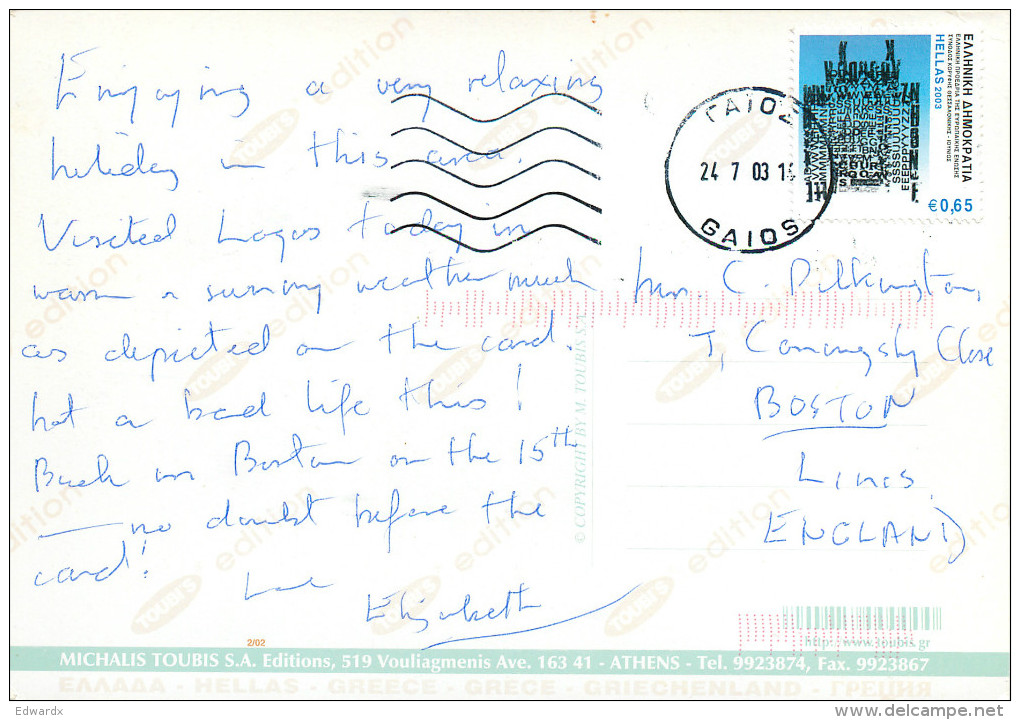 Enjoying a very relaxing
holiday in this area.
Visited Logos today in
warm & sunny weather much
as depicted on the card.
Not a bad life this!
Back in Boston on the 15th
— no doubt before the
card!
Love
Elizabeth
Mrs. C. Pilkington,
7, Coningsby Close
BOSTON
Lincs.
ENGLAND
ΕΛΛΗΝΙΚΗ ΔΗΜΟΚΡΑΤΙΑ
ΕΛΛΗΝΙΚΗ ΠΡΟΕΔΡΙΑ ΤΗΣ ΕΥΡΩΠΑΪΚΗΣ ΕΝΩΣΗΣ
ΣΥΝΟΔΟΣ ΚΟΡΥΦΗΣ ΘΕΣΣΑΛΟΝΙΚΗΣ ΙΟΥΝΙΟΣ
HELLAS 2003
€0,65
ΓΑΙΟΣ
24 7 03
GAIOS
© COPYRIGHT BY M. TOUBIS S.A.
TOUBI'S edition
2/02
http://www.toubis.gr
MICHALIS TOUBIS S.A. Editions, 519 Vouliagmenis Ave. 163 41 - ATHENS - Tel. 9923874, Fax. 9923867
ΕΛΛΑΔΑ - HELLAS - GREECE - GRÈCE - GRIECHENLAND - ГРЕЦИЯ
Edwardx
delcampe.net